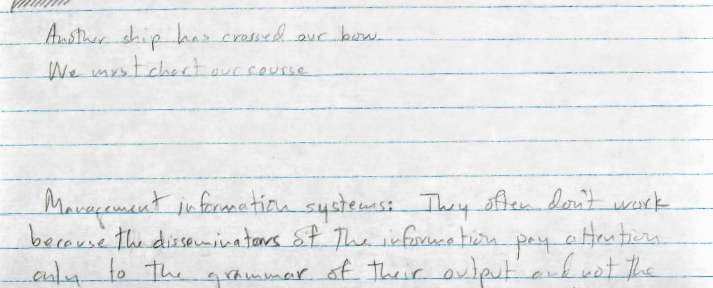 Another ship has crossed our bow.
We must chart our course
Management information systems: They often don't work
because the disseminators of the information pay attention
only to the grammar of their output and not the